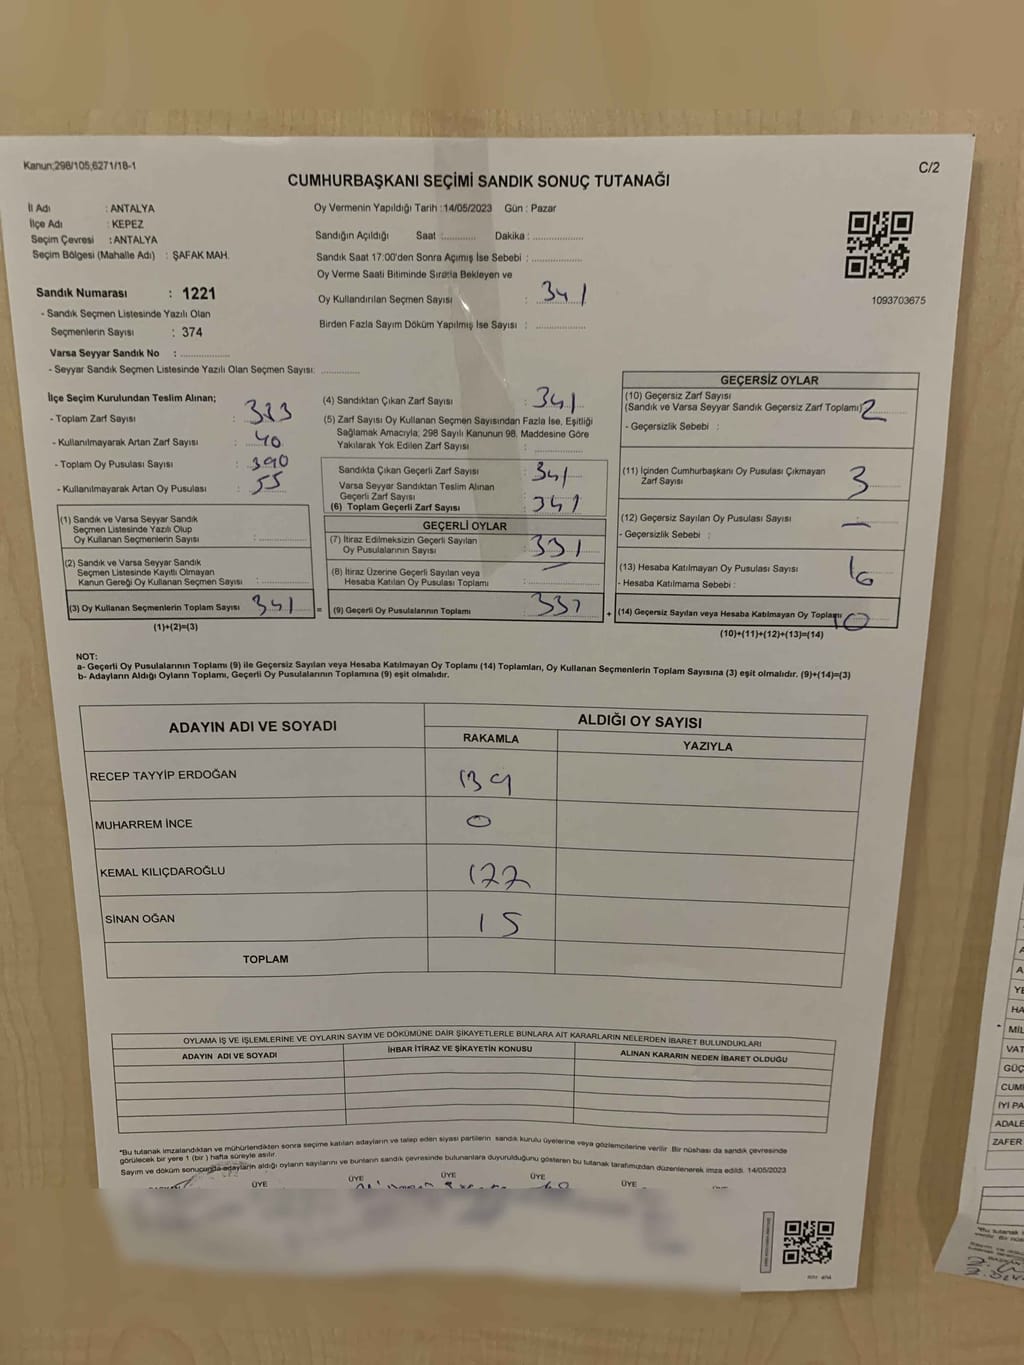 Kanun;298/105;6271/18-1
C/2
CUMHURBAŞKANI SEÇİMİ SANDIK SONUÇ TUTANAĞI
İl Adı : ANTALYA
İlçe Adı : KEPEZ
Seçim Çevresi : ANTALYA
Seçim Bölgesi (Mahalle Adı) : ŞAFAK MAH.
Sandık Numarası : 1221
- Sandık Seçmen Listesinde Yazılı Olan
Seçmenlerin Sayısı : 374
Varsa Seyyar Sandık No : ..............
- Seyyar Sandık Seçmen Listesinde Yazılı Olan Seçmen Sayısı: ............
Oy Vermenin Yapıldığı Tarih :14/05/2023 Gün : Pazar
Sandığın Açıldığı Saat :........... Dakika : ................
Sandık Saat 17:00'den Sonra Açımış İse Sebebi : ................
Oy Verme Saati Bitiminde Sırada Bekleyen ve
Oy Kullandırılan Seçmen Sayısı : 341
Birden Fazla Sayım Döküm Yapılmış İse Sayısı : ................
1093703675
İlçe Seçim Kurulundan Teslim Alınan;
- Toplam Zarf Sayısı :
- Kullanılmayarak Artan Zarf Sayısı : 40
- Toplam Oy Pusulası Sayısı : 390
- Kullanılmayarak Artan Oy Pusulası : 55
(1) Sandık ve Varsa Seyyar Sandık
Seçmen Listesinde Yazılı Olup
Oy Kullanan Seçmenlerin Sayısı : ................
(2) Sandık ve Varsa Seyyar Sandık
Seçmen Listesinde Kayıtlı Olmayan
Kanun Gereği Oy Kullanan Seçmen Sayısı : ................
(3) Oy Kullanan Seçmenlerin Toplam Sayısı : 341 =
(1)+(2)=(3)
(4) Sandıktan Çıkan Zarf Sayısı : 341
(5) Zarf Sayısı Oy Kullanan Seçmen Sayısından Fazla İse, Eşitliği
Sağlamak Amacıyla; 298 Sayılı Kanunun 98. Maddesine Göre
Yakılarak Yok Edilen Zarf Sayısı : ................
Sandıkta Çıkan Geçerli Zarf Sayısı : 341
Varsa Seyyar Sandıktan Teslim Alınan
Geçerli Zarf Sayısı
(6) Toplam Geçerli Zarf Sayısı : 341
GEÇERLİ OYLAR
(7) İtiraz Edilmeksizin Geçerli Sayılan
Oy Pusulalarının Sayısı : 331
(8) İtiraz Üzerine Geçerli Sayılan veya
Hesaba Katılan Oy Pusulası Toplamı : ................
(9) Geçerli Oy Pusulalarının Toplamı : +
GEÇERSİZ OYLAR
(10) Geçersiz Zarf Sayısı
(Sandık ve Varsa Seyyar Sandık Geçersiz Zarf Toplamı) 2
- Geçersizlik Sebebi :
(11) İçinden Cumhurbaşkanı Oy Pusulası Çıkmayan
Zarf Sayısı 3
(12) Geçersiz Sayılan Oy Pusulası Sayısı : —
- Geçersizlik Sebebi :
(13) Hesaba Katılmayan Oy Pusulası Sayısı :
- Hesaba Katılmama Sebebi :
(14) Geçersiz Sayılan veya Hesaba Katılmayan Oy Toplamı 10
(10)+(11)+(12)+(13)=(14)
NOT:
a- Geçerli Oy Pusulalarının Toplamı (9) ile Geçersiz Sayılan veya Hesaba Katılmayan Oy Toplamı (14) Toplamları, Oy Kullanan Seçmenlerin Toplam Sayısına (3) eşit olmalıdır. (9)+(14)=(3)
b- Adayların Aldığı Oyların Toplamı, Geçerli Oy Pusulalarının Toplamına (9) eşit olmalıdır.
ADAYIN ADI VE SOYADI
ALDIĞI OY SAYISI
RAKAMLA
YAZIYLA
RECEP TAYYİP ERDOĞAN 139
MUHARREM İNCE 0
KEMAL KILIÇDAROĞLU 177
SİNAN OĞAN 15
TOPLAM
OYLAMA İŞ VE İŞLEMLERİNE VE OYLARIN SAYIM VE DÖKÜMÜNE DAİR ŞİKAYETLERLE BUNLARA AİT KARARLARIN NELERDEN İBARET BULUNDUKLARI
ADAYIN ADI VE SOYADI
İHBAR İTİRAZ VE ŞİKAYETİN KONUSU
ALINAN KARARIN NEDEN İBARET OLDUĞU
*Bu tutanak imzalandıktan ve mühürlendikten sonra seçime katılan adayların ve talep eden siyasi partilerin sandık kurulu üyelerine veya gözlemcilerine verilir. Bir nüshası da sandık çevresinde
görülecek bir yere 1 (bir ) hafta süreyle asılır.
Sayım ve döküm sonucunda adayların aldığı oyların sayılarını ve bunların sandık çevresinde bulunanlara duyurulduğunu gösteren bu tutanak tarafımızdan düzenlenerek imza edildi. 14/05/2023
ÜYE
ÜYE
ÜYE
ÜYE
ÜYE
MİL
VAT
GÜÇ
CUM
İYİ PA
ADALE
ZAFER